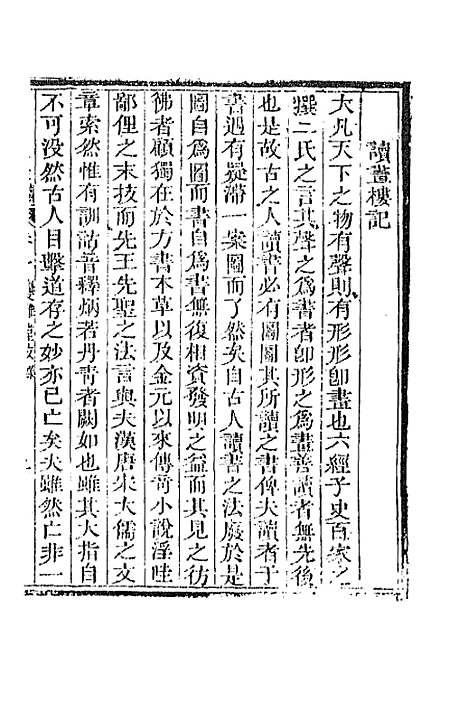 讀畫樓記
大凡天下之物有聲則有形形卽畫也六經子史百家之
撰二氏之言其聲之爲書者卽形之爲畫善讀者無先後
也是故古之人讀書必有圖圖其所讀之書俾夫讀者于
書遇有疑滯一案圖而了然矣自古人讀書之法廢於是
圖自爲圖而書自爲書無復相資發明之益而其見之彷
彿者顧獨在於方書本草以及金元以來傳奇小說淫哇
鄙俚之末技而先王先聖之法言與夫漢唐宋大儒之文
章索然惟有訓詁音釋炳若丹靑者闕如也雖其大指自
不可没然古人目擊道存之妙亦已亡矣夫雖然亡非一